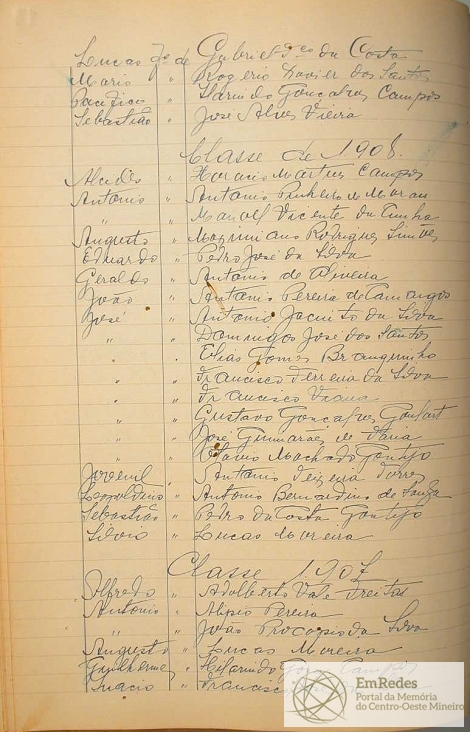 Lucas fº de Gabriel Fco da Costa
Mario " Rogerio Xavier dos Santos
Pacifico " Gonçalves Campos
Sebastião " José Alves Vieira
Classe de 1908.
Alcides " Horacio Martins Campos
Antonio " Antonio Pinheiro de Moraes
" " Manoel Vicente da Cunha
Augusto " Maximiano Rodrigues
Eduardo " Pedro José da Silva
Geraldo " Antonio de Oliveira
João " Antonio Pereira de Camargos
José " Antonio Jacinto da Silva
" " Domingos José dos Santos
" " Elias Gomes
" " Francisco Ferreira da Silva
" " Francisco Viana
" " Gustavo Gonçalves
" " José Guimarães de Faria
" " Machado Gontijo
Jovenil " Antonio Teixeira Torres
Leopoldino " Antonio Bernardino de Souza
Sebastião " Pedro da Costa Gontijo
Silvio " Lucas Moreira
Classe 1907
Alfredo " Adolberto Vale Freitas
Antonio " Alipio Pereira
" " João Procopio da Silva
Augusto " Lucas Moreira
Guilherme " Campos
Inacio " Francisco
EmRedes
Portal da Memória
do Centro-Oeste Mineiro